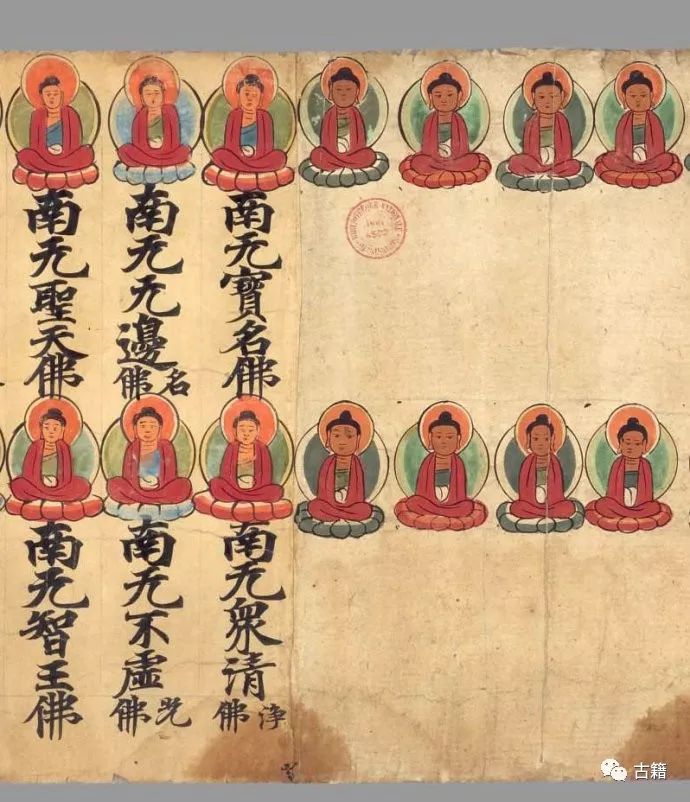 南无寶名佛
南无无邊名佛
南无聖天佛
南无衆清淨佛
南无不虛光佛
南无智王佛
古籍